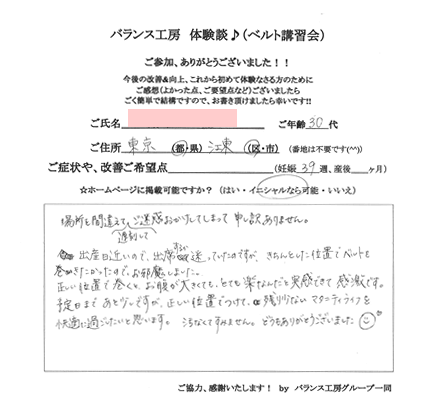 バランス工房 体験談♪(ベルト講習会)
ご参加、ありがとうございました！！
今後の改善&向上、これから初めて体験なさる方のために
ご感想(よかった点、ご要望点など)ございましたら
ごく簡単で結構ですので、お書き頂けましたら幸いです!!
ご氏名 ご年齢 30 代
ご住所 東京 (都・県) 江東 (区・市) (番地は不要です(^^))
ご症状や、改善ご希望点 (妊娠 39 週、産後 ヶ月)
☆ホームページに掲載可能ですか？ (はい・イニシャルなら可能・いいえ)
場所を間違えて、ご迷惑おかけしてしまって 申し訳ありません。
遅刻して
出産日近いので、出席 迷っていたのですが、きちんとした位置でベルトを
巻きたかったので、お邪魔しました。
正しい位置で巻くと、お腹が大きくても、とても楽なんだと実感できて感激です。
予定日まであと少しですが、正しい位置でつけて、残り少ないマタニティライフを
快適に過ごしたいと思います。 きたなくてすみません。どうもありがとうございました
ご協力、感謝いたします！ by バランス工房グループ一同